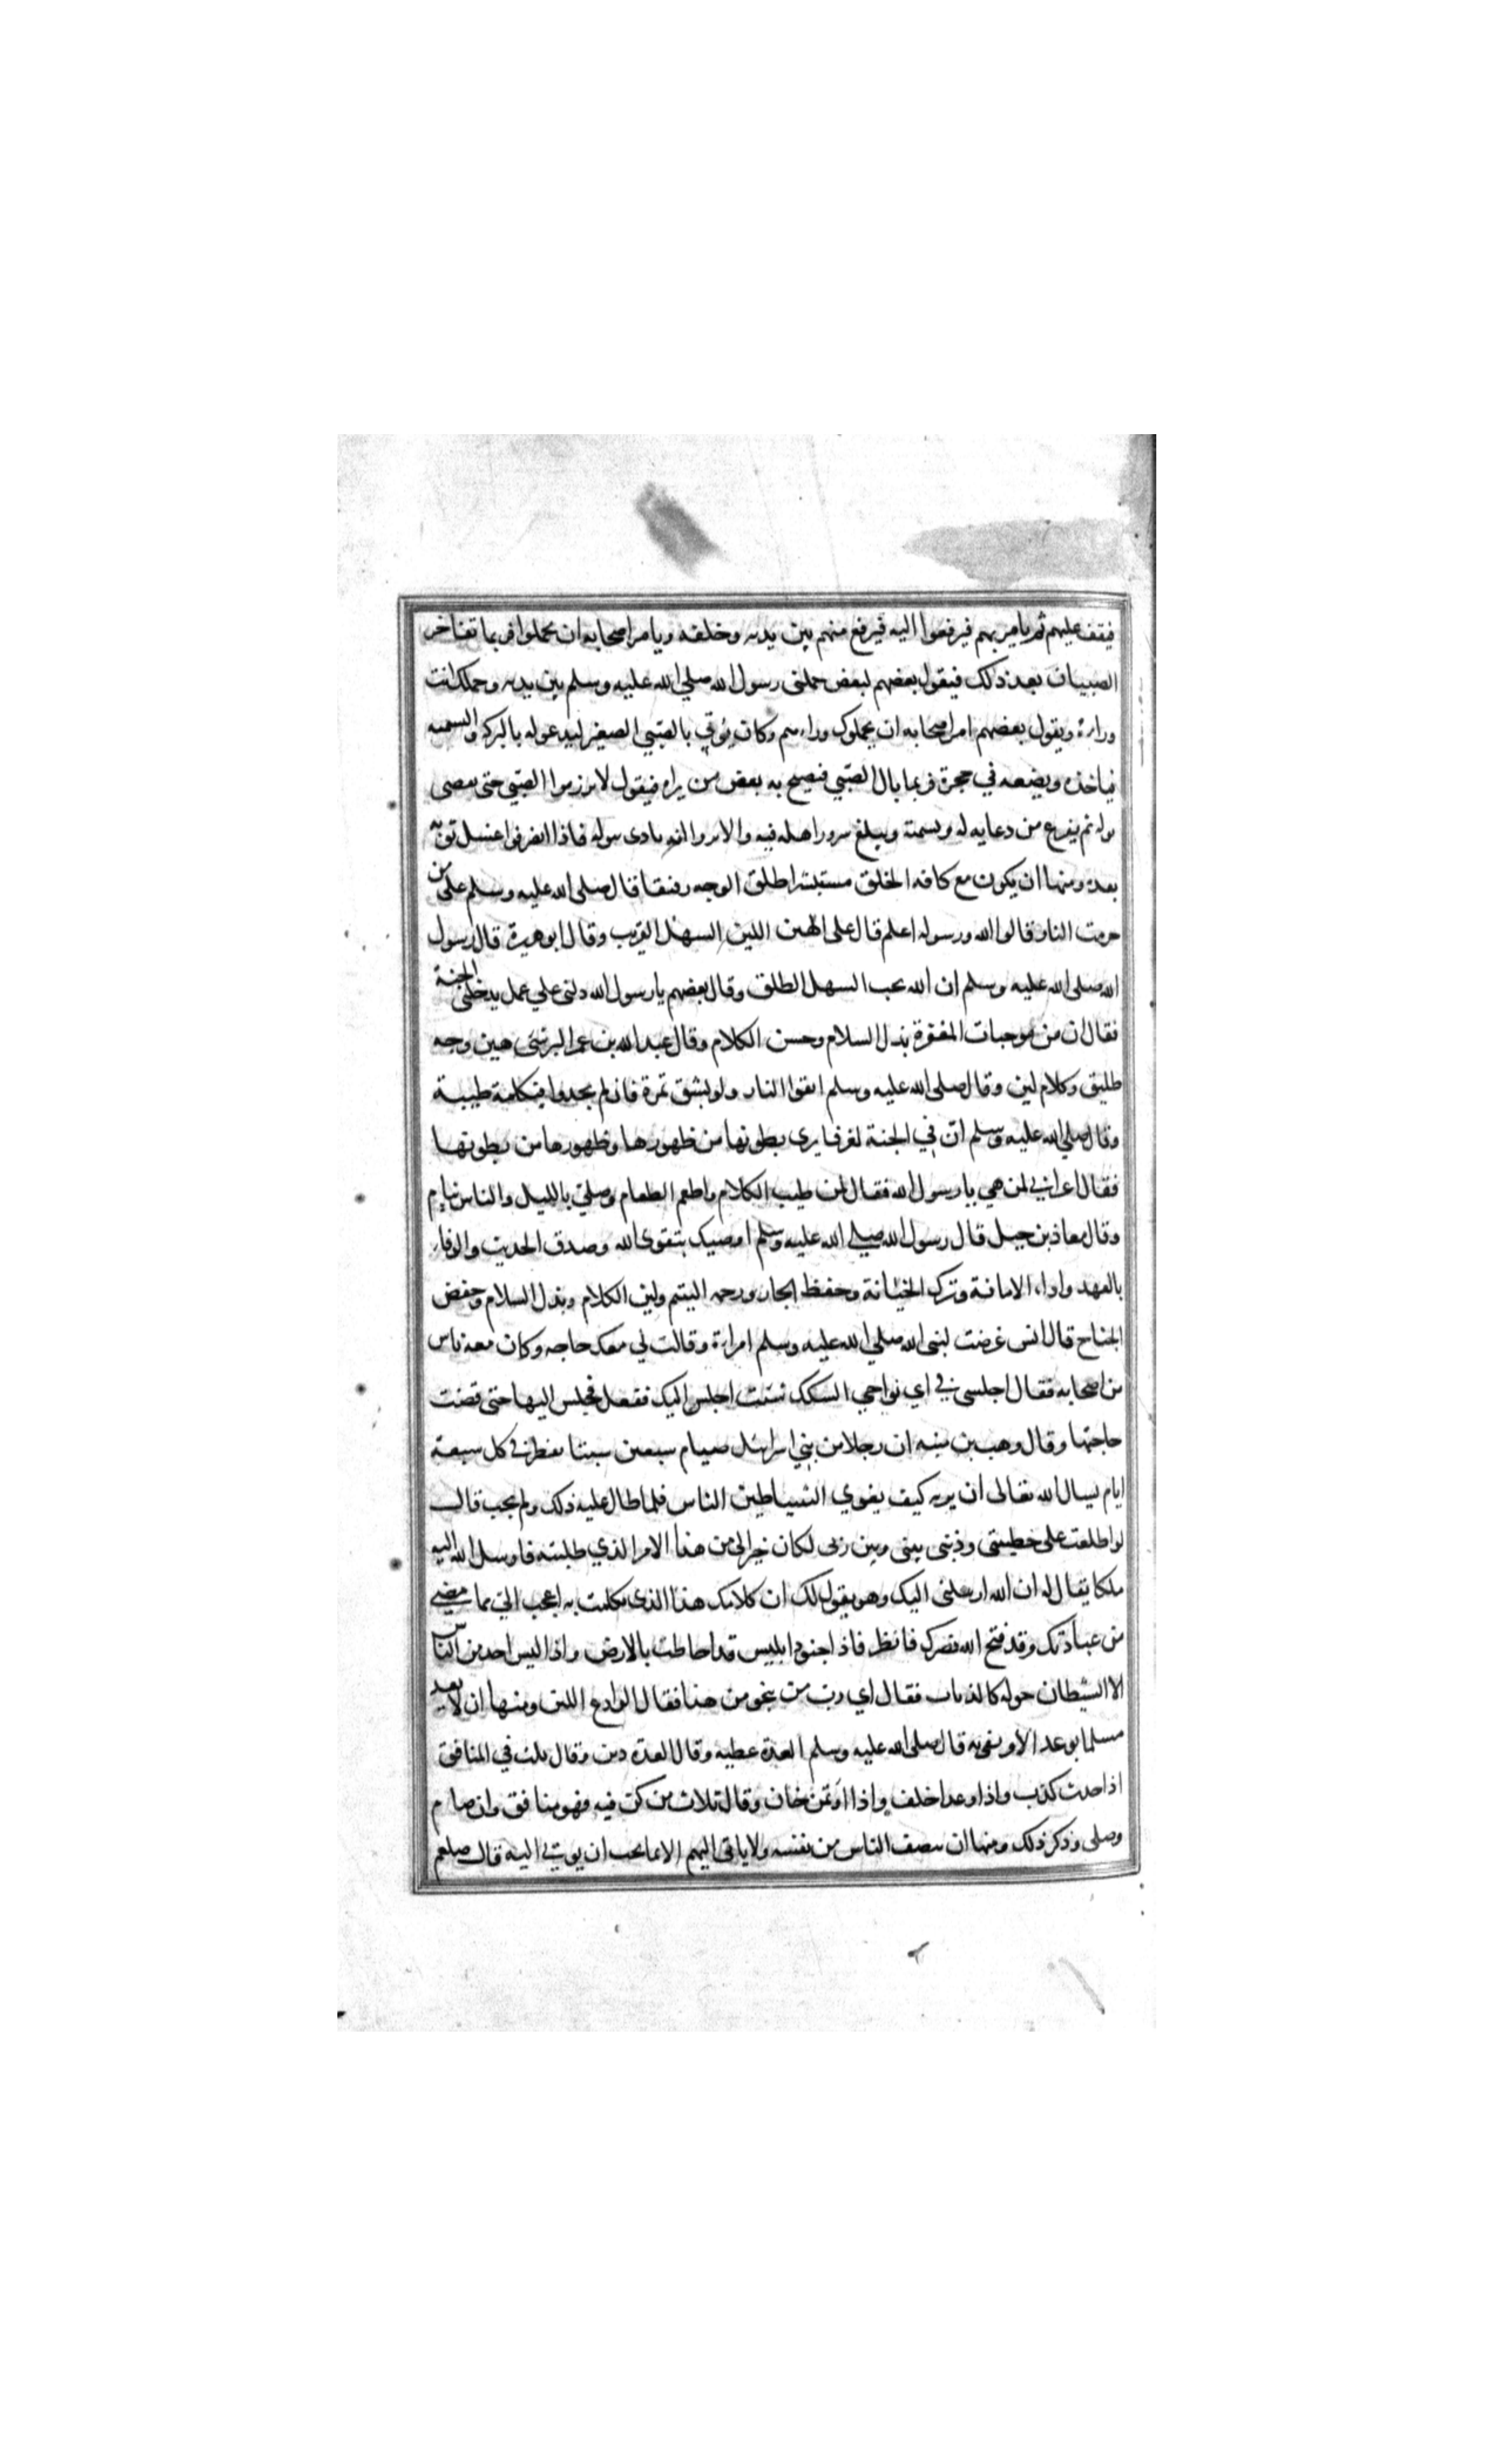 فيقف عليهم ثم يامر بهم فيرفعوا اليه فيرفع منهم بين يديه وخلفه ويامر اصحابه ان يحملوا فربما تفاخر
الصبيان بعد ذلك فيقول بعضهم لبعض حملني رسول الله صلي الله عليه وسلم بين يديه وحملك انت
وراءه ويقول بعضهم امر اصحابه ان يحملوك وراءهم وكان يؤتي بالصبي الصغير ليدعو له بالبركة والسمية
فياخذه ويضعه في حجرة فربما بال الصبي فيصيح به بعض من يراه فيقول لا تزرموا الصبي حتى يقضي
بوله ثم يفرغ من دعايه له وتسمته ويبلغ سرور اهله فيه والا يروا انه تاذى ببوله فاذا انصرفوا غسل ثوبه
بعده ومنها ان يكون مع كافه الخلق مستبشرا طلق الوجه رفيقا قال صلى الله عليه وسلم على من
حرمت النار قالوا الله ورسوله اعلم قال على الهين اللين السهل القريب وقال ابو هريرة قال رسول
الله صلى الله عليه وسلم ان الله يحب السهل الطلق وقال بعضهم يا رسول الله دلني علي عمل يدخلني الجنة
فقال ان من موجبات المغفرة بذل السلام وحسن الكلام وقال عبد الله بن عمر البر شئ هين وجه
طليق وكلام لين وقال صلى الله عليه وسلم اتقوا النار ولو بشق تمرة فان لم تجدوا فبكلمة طيبة
وقال صلي الله عليه وسلم ان في الجنة لغرفا يرى بطونها من ظهورها وظهورها من بطونها
فقال اعرابي لمن هي يا رسول الله فقال لمن طيب الكلام واطعم الطعام وصلى بالليل والناس نيام
وقال معاذ بن جبل قال رسول الله صلي الله عليه وسلم اوصيك بتقوى الله وصدق الحديث والوفاء
بالعهد واداء الامانة وترك الخيانة وحفظ الجار ورحمه اليتيم ولين الكلام وبذل السلام وخفض
الجناح قال انس عرضت لنبى الله صلي الله عليه وسلم امراءة وقالت لي معك حاجه وكان معه ناس
من اصحابه فقال اجلسى في اي نواحي السكك شئت اجلس اليك ففعل فجلس اليها حتى قضت
حاجتها وقال وهب بن منبه ان رجلا من بني اسرائيل صام سبعين سبتا يفطر في كل سبعة
ايام ليسال الله تعالى ان يريه كيف يغوي الشياطين الناس فلما طال عليه ذلك ولم يجب قال
لو اطلعت على خطيئتى وذنبى بينى وبين ربى لكان خيرا لي من هذا الامر الذي طلبته فارسل الله اليه
ملكا يقال له ان الله ارسلنى اليك وهو يقول لك ان كلامك هذا الذى تكلمت به اعجب الي مما مضي
من عبادتك وقد فتح الله بصرك فانظر فاذا جنود ابليس قد احاطت بالارض واذا ليس احد من الناس
الا الشيطان حوله كالذباب فقال اي رب من ينجو من هذا فقال الوادع اللين ومنها ان لا يعد
مسلما بوعد الا ويفى به قال صلى الله عليه وسلم العدة عطيه وقال العدة دين وقال ثلث في المنافق
اذا حدث كذب واذا وعد اخلف واذا اؤتمن خان وقال ثلاث من كن فيه فهو منافق وان صام
وصلى وذكر ذلك ومنها ان ينصف الناس من نفسه ولا ياتى اليهم الا بما يحب ان يوتي اليه قال صلعم